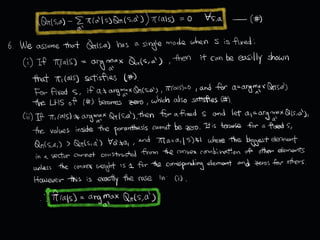 (Qπ(s,a) − Σ_a' π(a'|s)Qπ(s,a')) π(a|s) = 0 ∀s,a — (#)
6. We assume that Qπ(s,a) has a single mode when s is fixed.
(i) If π(a|s) = argmax_a' Qπ(s,a'), then it can be easily shown
that π(a|s) satisfies (#)
For fixed s, if a ≠ argmax_a' Qπ(s,a'), π(a|s)=0, and for a=argmax_a' Qπ(s,a')
the LHS of (#) becomes zero, which also satisfies (#)
(ii) If π(a|s) ≠ argmax_a' Qπ(s,a'), then for a fixed s and let a₁=argmax_a' Qπ(s,a'),
the values inside the paranthesis cannot be zero. It is because for a fixed s,
Qπ(s,a₁) > Qπ(s,a) ∀a≠a₁, and π(a=a₁|s)≠1 where the biggest element
in a vector cannot constructed from the convex combination of other elements
unless the convex weight is 1 for the corresponding element and zeros for others.
However this is exactly the case in (i).
∴ π(a|s) = argmax_a' Qπ(s,a')